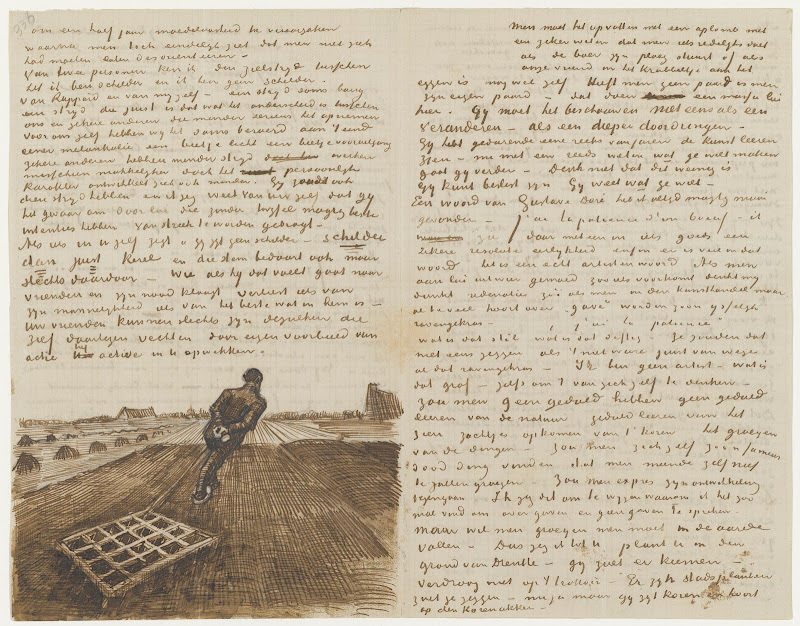 336
om een half jaar moedeloosheid te veroorzaken
waarna men toch eindelyk ziet dat men niet zich
had moeten laten desorienteeren.
Van twee personen ken ik den zielstryd tusschen
het ik ben schilder en ik ben geen schilder.
Van Rappard en van my zelf – een stryd soms bang
een stryd die juist is dat wat het onderscheid is tusschen
ons en zekere anderen die minder serieus het opnemen
voor ons zelf hebben wy 't soms beroerd aan 't eind
eener melankolie een beetje licht een beetje vooruitgang
zekere anderen hebben minder stryd werken
misschien makkelyker doch het persoonlyk
karakter ontwikkelt zich ook minder. Gy zoudt ook
dien stryd hebben en ik zeg weet van uw zelf dat gy
het gevaar om door lui die zonder twyfel magre beste
intenties hebben van streek te worden gebragt.
Als iets in U zelf zegt „gy zyt geen schilder„ – schilder
dan juist kerel en die stem bedaart ook maar
slechts daardoor – wie als hy dat voelt gaat naar
vrienden en zyn nood klaagt verliest iets van
zyn mannelykheid iets van het beste wat in hem is –
Uw vrienden kunnen slechts zyn degenen die
zelf daartegen vechten door eigen voorbeeld van
actie het active in U opwekken.
Men moet het opvatten met een aplomb met
een zeker weten dat men iets redelyks doet
als de boer zyn ploeg stuurt of als
onze vriend in het krabbeltje die aan het
eggen is nog wel zelf. Heeft men geen paard is men
zyn eigen paard – dat doen een massa lui
hier. Gy moet het beschouwen niet eens als een
veranderen – als een dieper doordringen –
Gy hebt gedurende eene reeks van jaren de kunst leeren
zien – nu met een reeds weten wat ge wilt maken
gaat gy verder – Denk niet dat dit weinig is
Gy kunt beslist zyn Gy weet wat ge wilt –
Een woord van Gustave Doré heb ik altyd magtig mooi
gevonden – j'ai la patience d'un boeuf – ik
zie daar meteen in iets goeds een
zekere resolute eerlykheid enfin er is veel in dat
woord het is een echt artistenwoord Als men
aan lui uit wier gemoed zoo iets voorkomt denkt my
dunkt redenaties zoo als men in den kunsthandel maar
al te veel hoort over „gave„ worden zoo'n yselyk
ravengekras – „j'ai la patience„
wat is dat stil wat is dat deftig Ze zouden dat
niet eens zeggen als 't niet ware juist van wege
al dat ravengekras – Ik ben geen artist – wat is
dat grof – zelfs om 't van zich zelf te denken –
zou men geen geduld hebben geen geduld
leeren van de natuur geduld leeren van het
zien zachtjes opkomen van 't koren het groeijen
van de dingen – zou men zich zelf zoo'n fameus
dood ding vinden dat men meende zelfs niet
te zullen groeijen. Zou men expres zyn ontwikkeling
tegengaan Ik zeg dit om te wyzen waarom ik het zoo
mal vind om over gaven en geen gaven te spreken.
Maar wil men groeijen men moet in de aarde
vallen – Dus zeg ik tot U plant U in den
grond van Drenthe – Gy zult er kiemen –
Verdroog niet op 't trottoir – Er zyn stadsplanten
zult ge zeggen – nu ja maar gy zyt koren en hoort
op den korenakker –